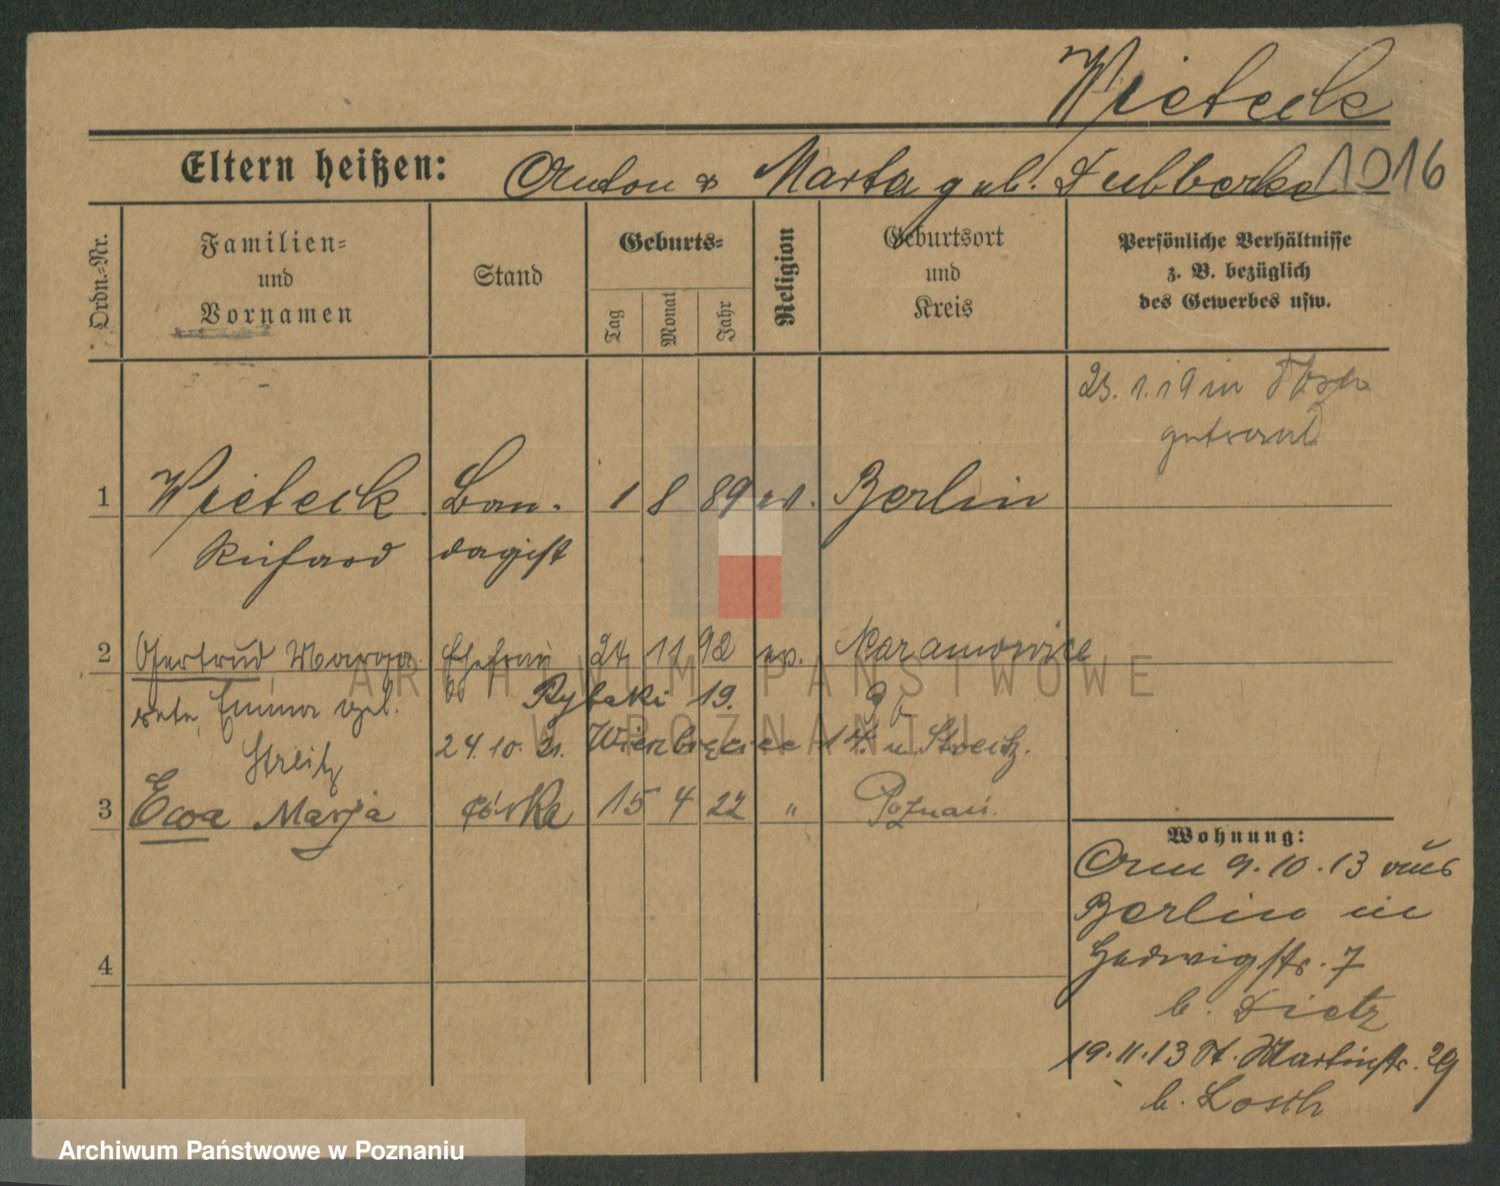 Wieteck
Eltern heißen: Anton & Marta geb. Dubberke 1016
Ordn.-Nr.
Familien- und Vornamen
Stand
Geburts-
Tag
Monat
Jahr
Religion
Geburtsort und Kreis
Persönliche Verhältnisse
z. B. bezüglich
des Gewerbes usw.
23. 1. 19 in
getraut
1 Wieteck Ban- 1 8 89 ev. Berlin
Richard dagist
2 Gertrud, Marga- Ehefrau 24 11 92 ev. Naramowice
rete, Emma geb. Rybaki 19.
Streitz 24. 10. 21. Wierzbięcice 14. u. Streitz.
3 Ewa Marja córka 15 4 22 " Poznań.
4
Wohnung:
Am 9. 10. 13 aus
Berlin in
Hedwigstr. 7
b. Dietz
19. 11. 13 St. Martinstr. 29
b. Losch
ARCHIWUM PAŃSTWOWE
W POZNANIU
Archiwum Państwowe w Poznaniu